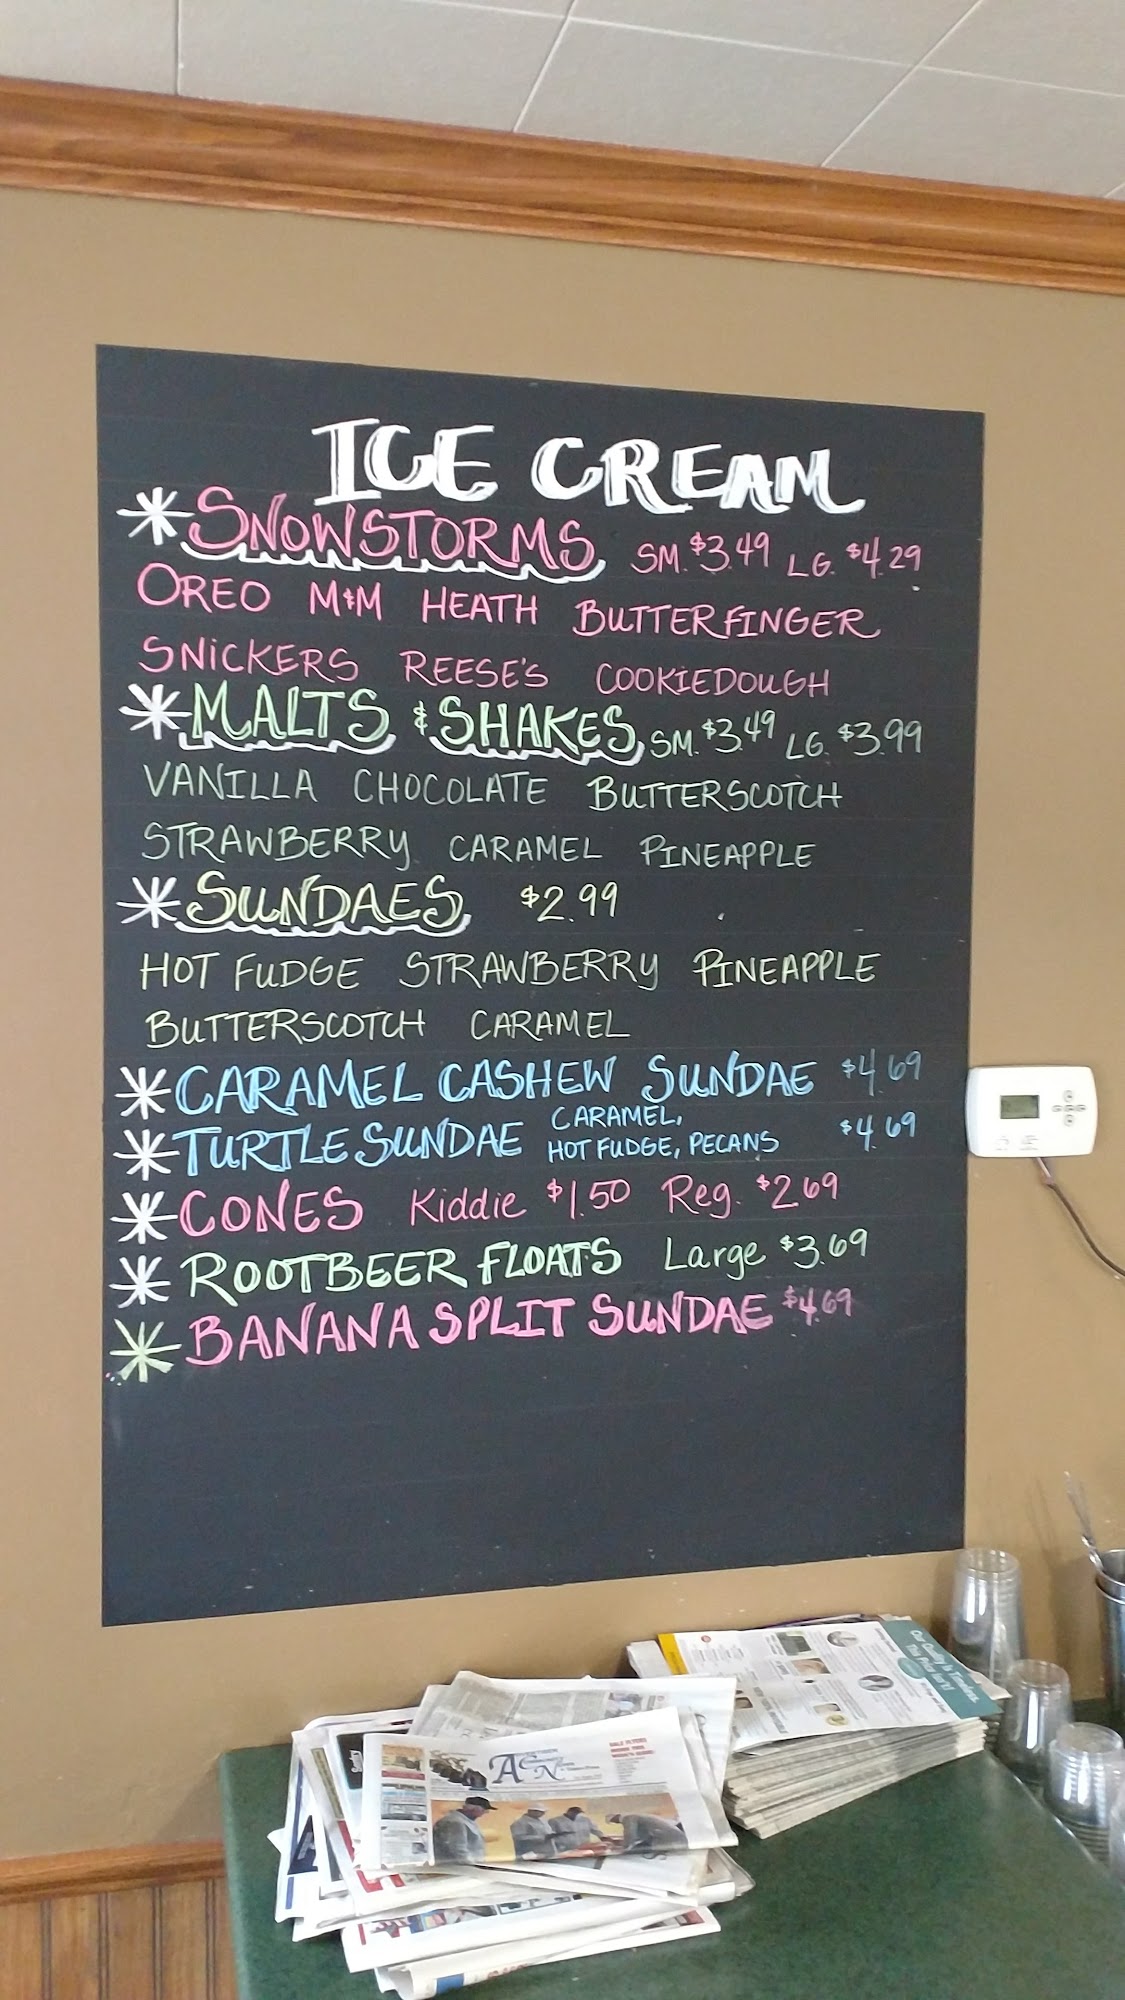 ICE CREAM
SNOWSTORMS SM. $3.49 LG. $4.29
OREO M&M HEATH BUTTERFINGER
SNICKERS REESE'S COOKIEDOUGH
MALTS & SHAKES SM. $3.49 LG. $3.99
VANILLA CHOCOLATE BUTTERSCOTCH
STRAWBERRY CARAMEL PINEAPPLE
SUNDAES $2.99
HOT FUDGE STRAWBERRY PINEAPPLE
BUTTERSCOTCH CARAMEL
CARAMEL CASHEW SUNDAE $4.69
TURTLE SUNDAE CARAMEL, HOT FUDGE, PECANS $4.69
CONES Kiddie $1.50 Reg. $2.69
ROOTBEER FLOATS Large $3.69
BANANA SPLIT SUNDAE $4.69
Our Quality Is Timeless.
This Price Isn't!
ACN